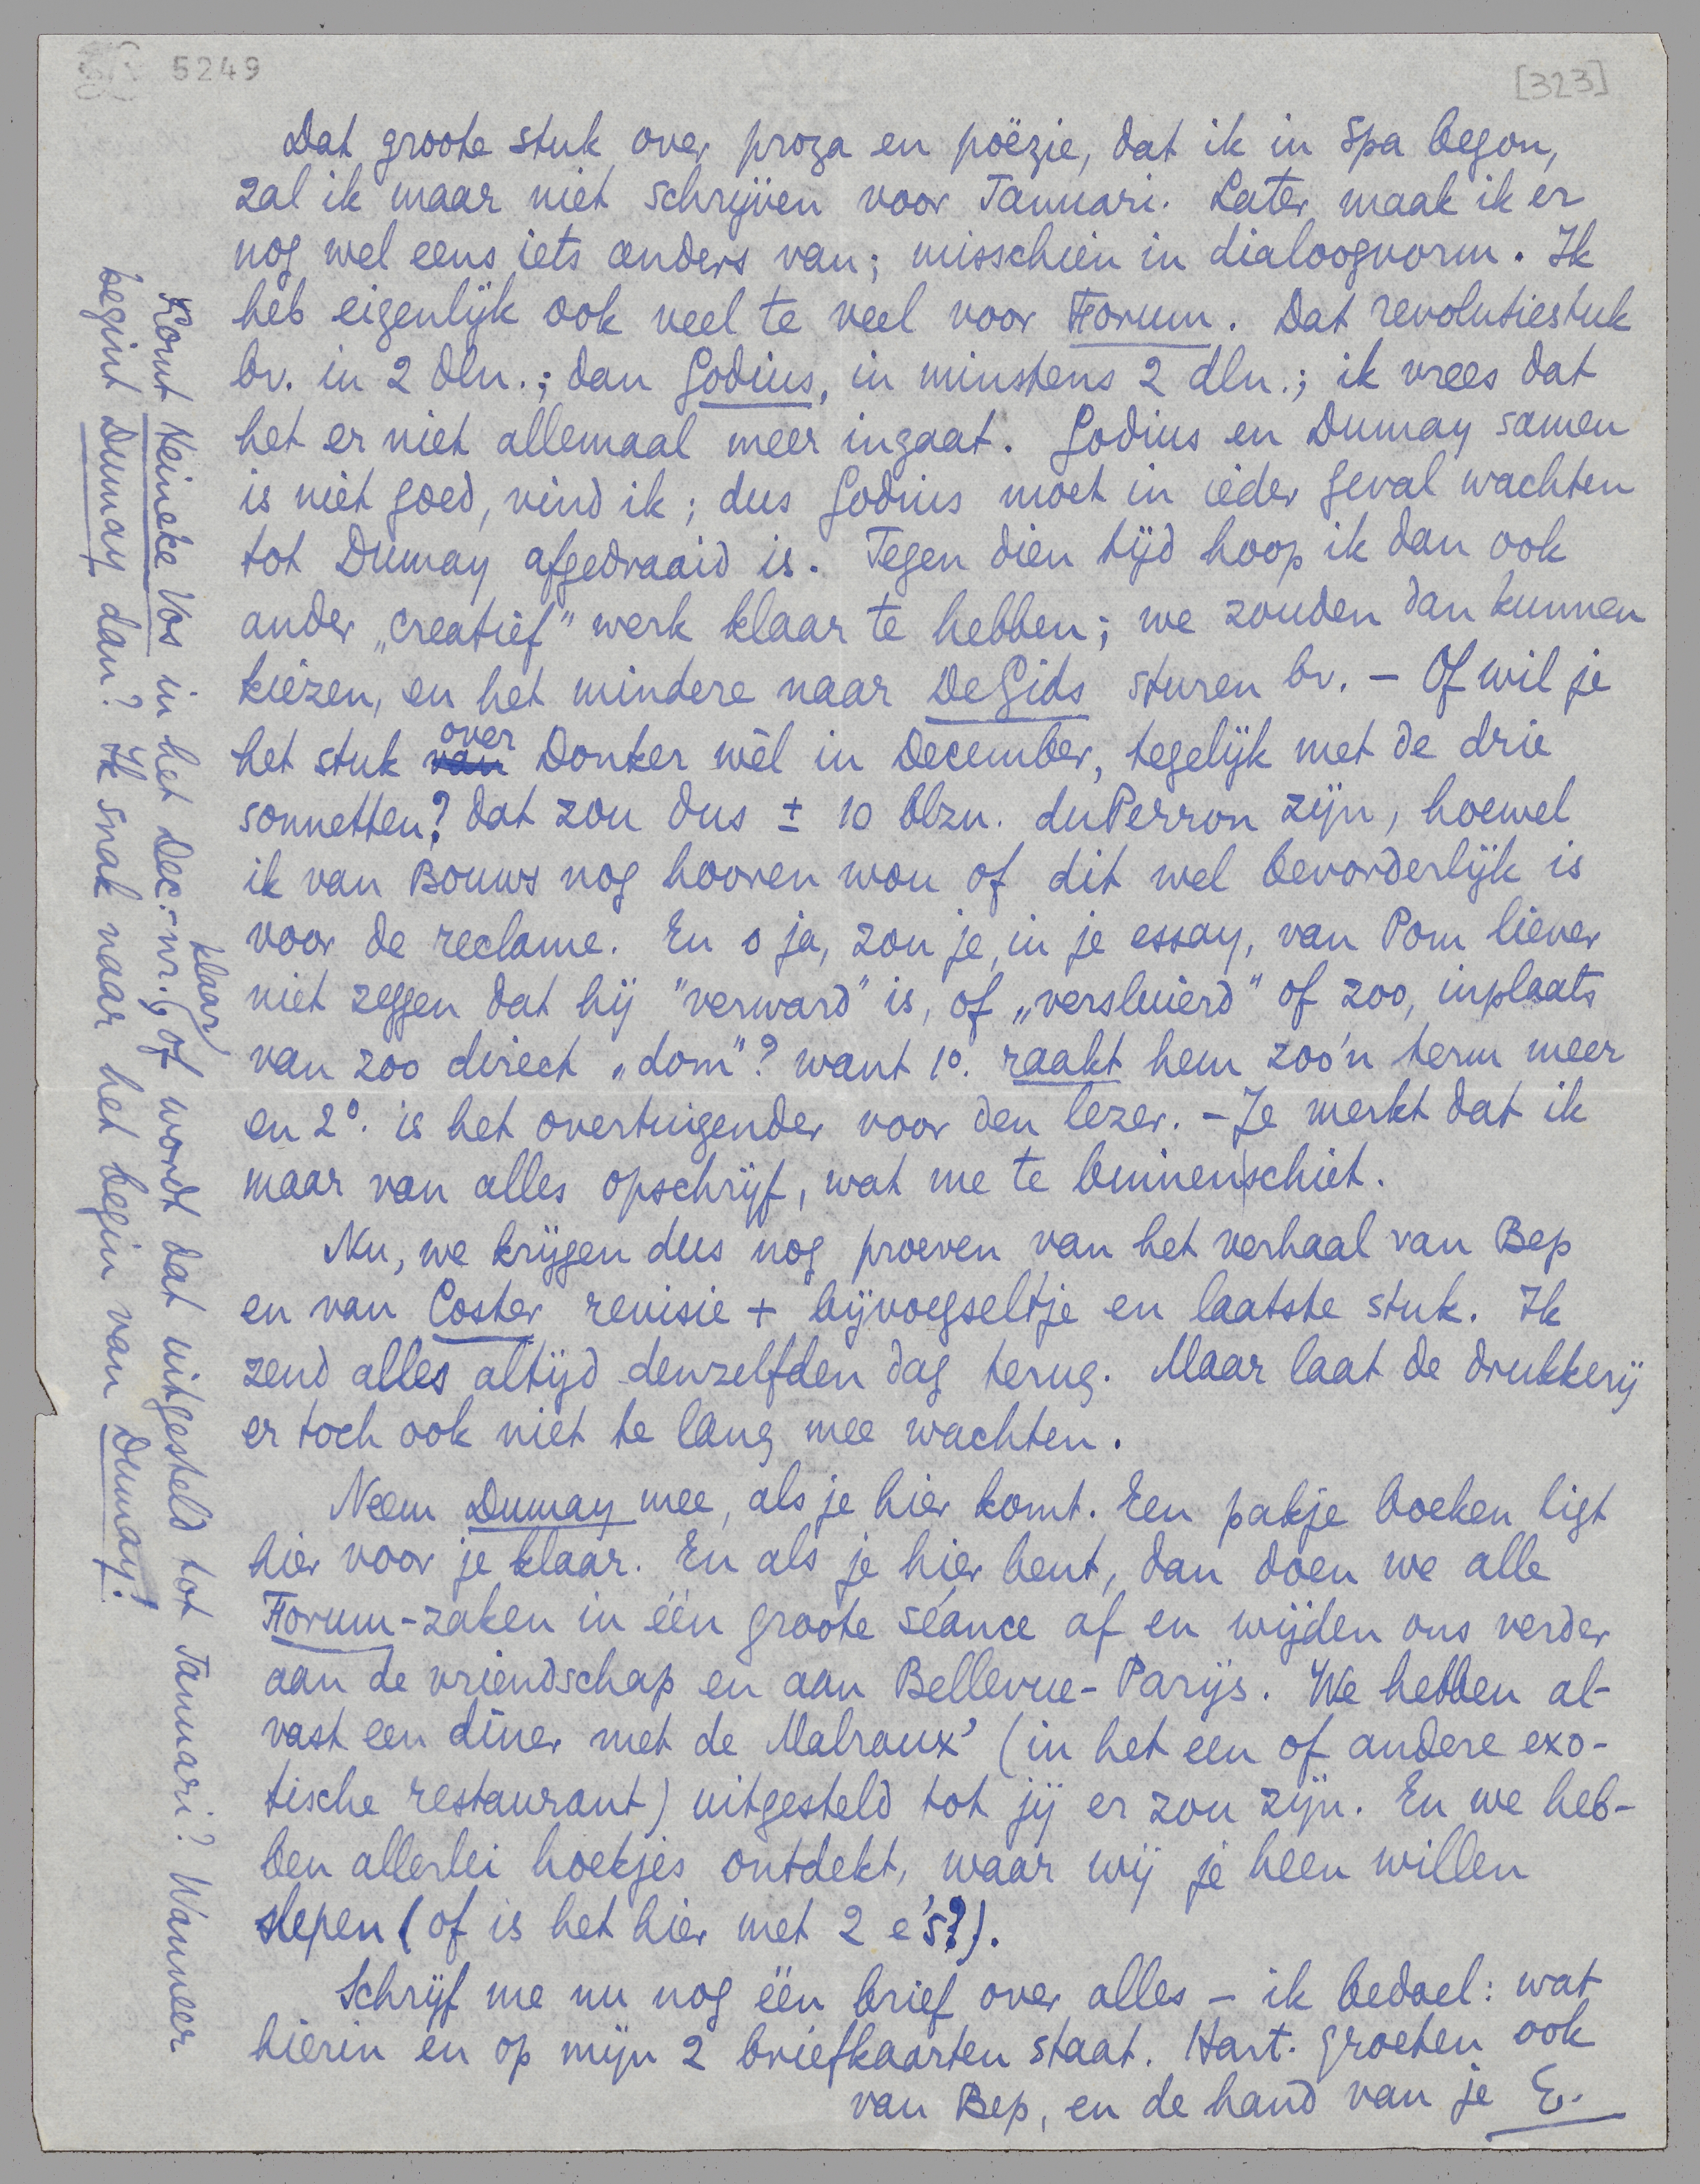 5249
[323]
Dat groote stuk over proza en poëzie, dat ik in Spa begon,
zal ik maar niet schrijven voor Januari. Later maak ik er
nog wel eens iets anders van; misschien in dialoogvorm. Ik
heb eigenlijk ook veel te veel voor Forum. Dat revolutiestuk
bv. in 2 dln.; dan Godius, in minstens 2 dln.; ik vrees dat
het er niet allemaal meer ingaat. Godius en Dumay samen
is niet goed, vind ik; dus Godius moet in ieder geval wachten
tot Dumay afgedraaid is. Tegen dien tijd hoop ik dan ook
ander „creatief” werk klaar te hebben; we zouden dan kunnen
kiezen, en het mindere naar De Gids sturen bv. – Of wil je
het stuk van over Donker wèl in December, tegelijk met de drie
sonnetten? dat zou dus ± 10 blzn. duPerron zijn, hoewel
ik van Bouws nog hooren wou of dit wel bevorderlijk is
voor de reclame. En o ja, zou je, in je essay, van Pom liever
niet zeggen dat hij "verward" is, of „versluierd” of zoo, inplaats
van zoo direct „dom”? want 1º. raakt hem zoo'n term meer
en 2º. is het overtuigender voor den lezer. – Je merkt dat ik
maar van alles opschrijf, wat me te binnen|schiet.
Nu, we krijgen dus nog proeven van het verhaal van Bep
en van Coster revisie + bijvoegseltje en laatste stuk. Ik
zend alles altijd denzelfden dag terug. Maar laat de drukkerij
er toch ook niet te lang mee wachten.
Neem Dumay mee, als je hier komt. Een pakje boeken ligt
hier voor je klaar. En als je hier bent, dan doen we alle
Forum-zaken in één groote séance af en wijden ons verder
aan de vriendschap en aan Bellevue-Parijs. We hebben al-
vast een dîner met de Malraux' (in het een of andere exo-
tische restaurant) uitgesteld tot jij er zou zijn. En we heb-
ben allerlei hoekjes ontdekt, waar wij je heen willen
slepen (of is het hier met 2 e's?).
Schrijf me nu nog één brief over alles – ik bedoel: wat
hierin en op mijn 2 briefkaarten staat. Hart. groeten ook
van Bep, en de hand van je E.
Komt Reineke Vos in het Dec.-nr. klaar, of wordt dat uitgesteld tot Januari? Wanneer
begint Dumay dan? Ik snak naar het begin van Dumay!